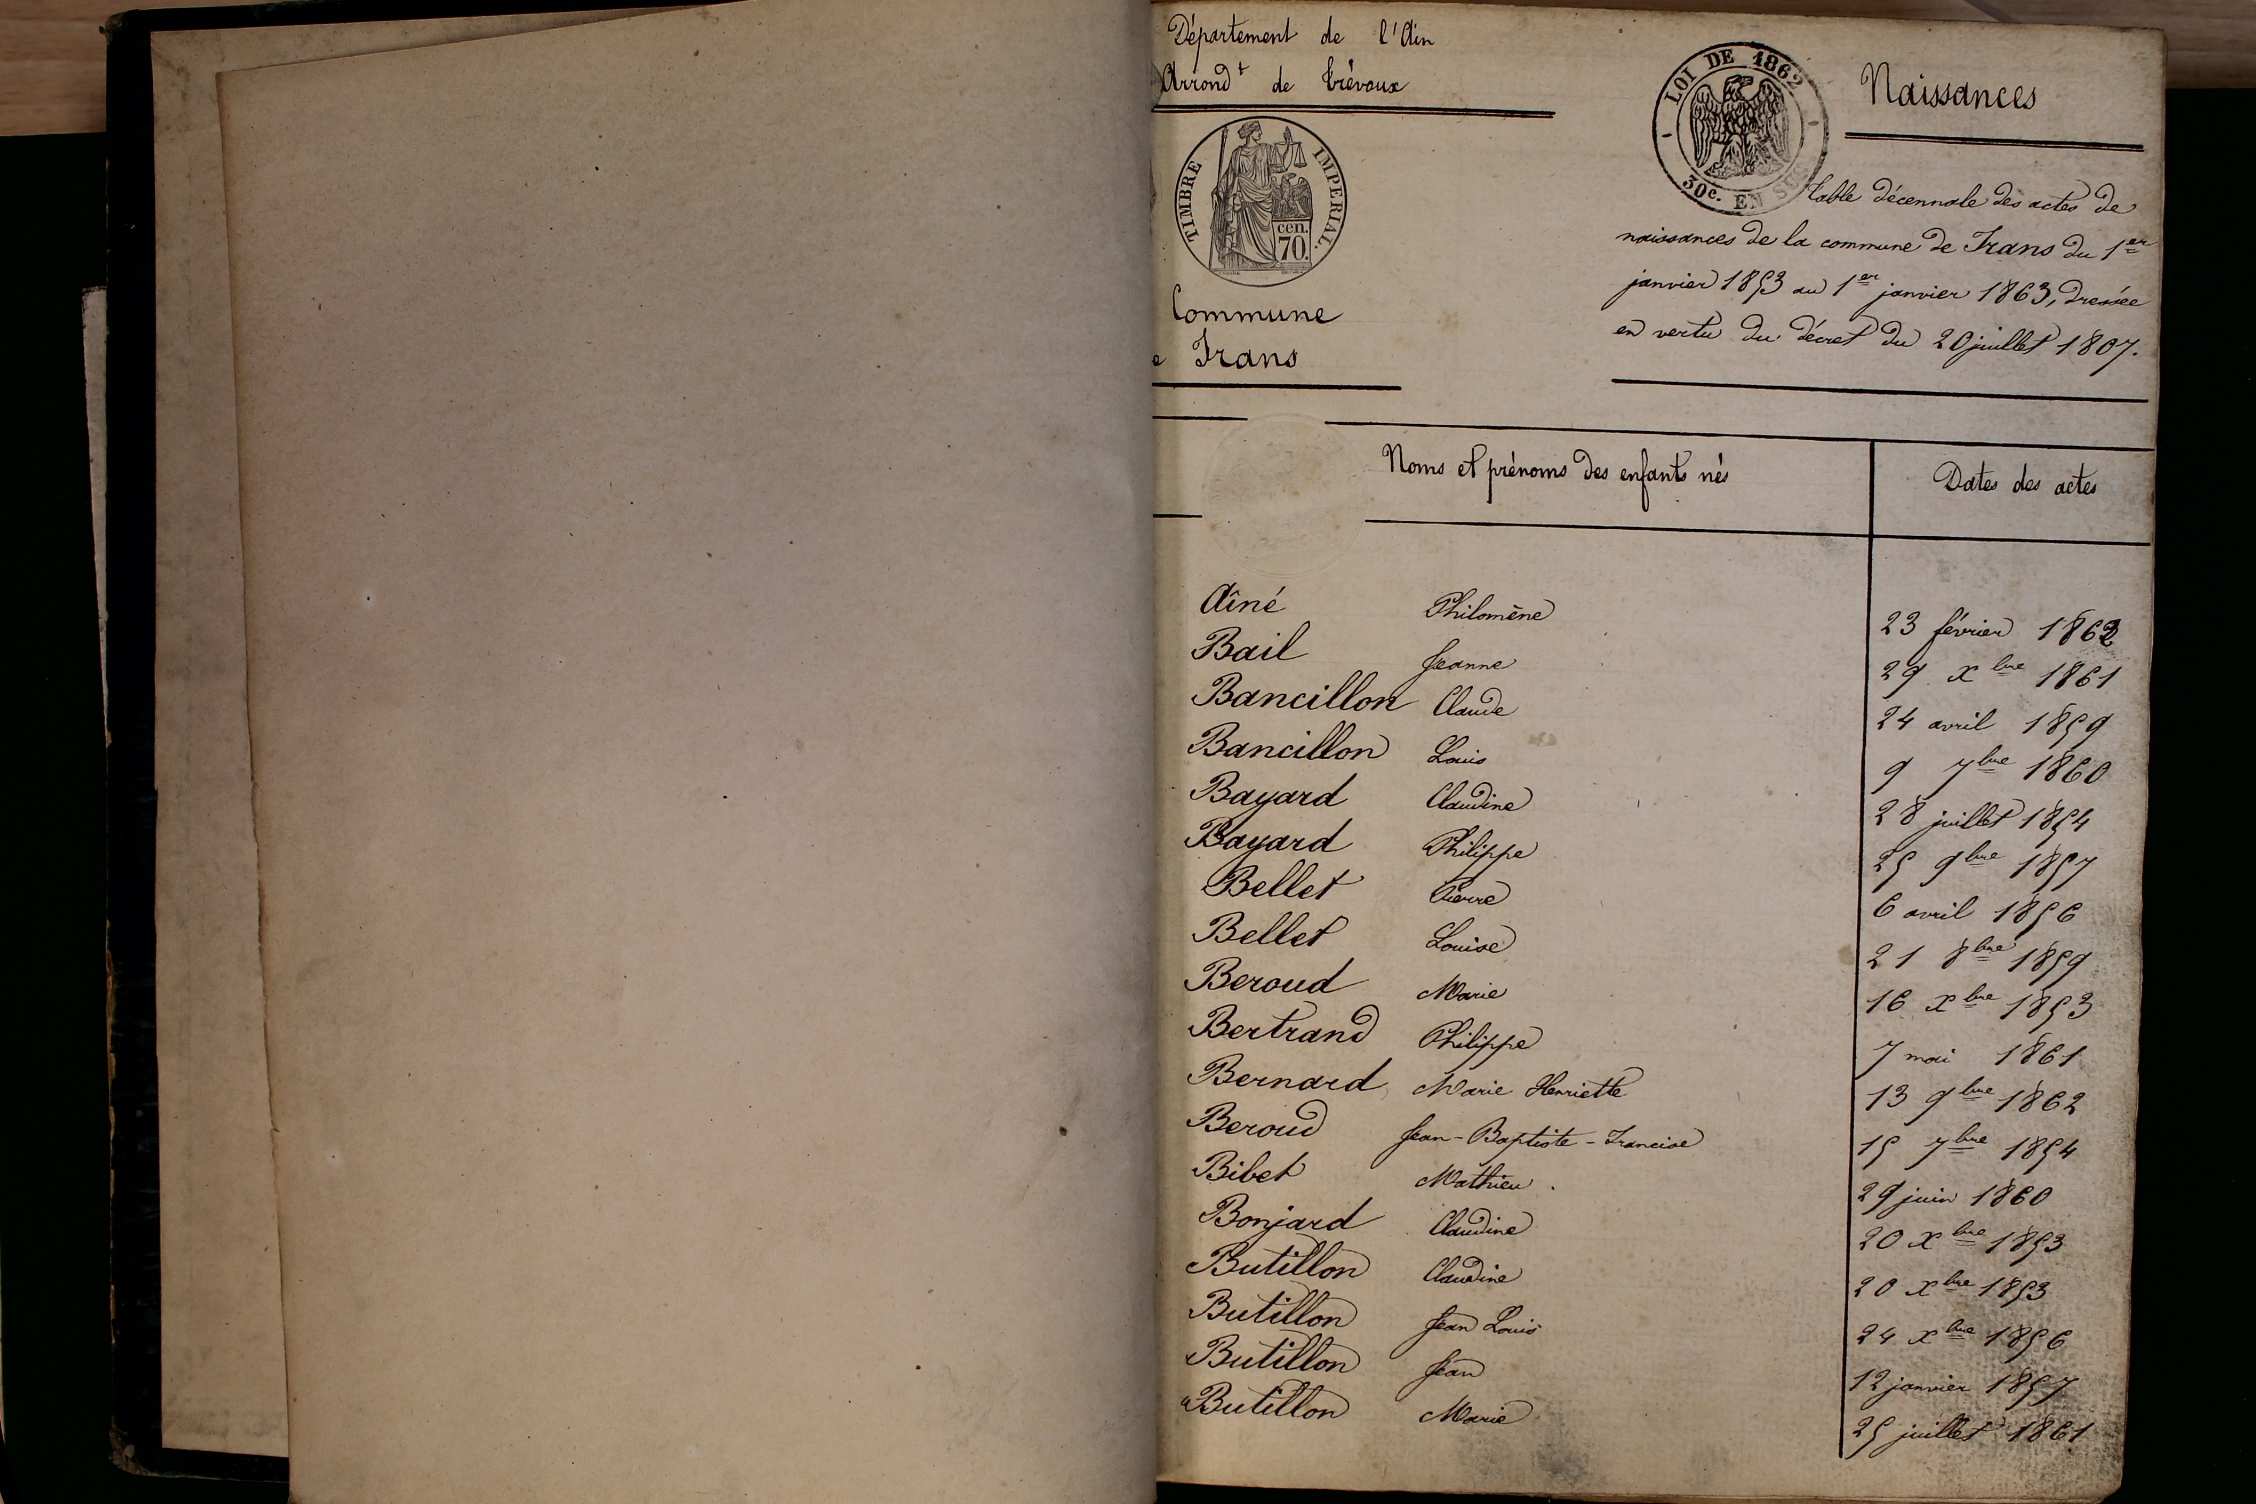 Département de l'Ain
Arrond^t de Trévoux
TIMBRE IMPERIAL.
cen.
70.
Commune
e Frans
LOI DE 1862
30c. EN SUS
Naissances
Table décennale des actes de
naissances de la commune de Frans du 1^er
janvier 1853 au 1^er janvier 1863, dressée
en vertu du décret du 20 juillet 1807.
Noms et prénoms des enfants nés Dates des actes
Aîné Philomène 23 février 1862
Bail Jeanne 29 x^bre 1861
Bancillon Claude 24 avril 1859
Bancillon Louis 9 7^bre 1860
Bayard Claudine 28 juillet 1854
Bayard Philippe 25 9^bre 1857
Bellet Pierre 6 avril 1856
Bellet Louise 21 8^bre 1859
Beroud Marie 16 x^bre 1853
Bertrand Philippe 7 mai 1861
Bernard Marie Henriette 13 9^bre 1862
Beroud Jean-Baptiste-Francise 15 7^bre 1854
Bibet Mathieu 29 juin 1860
Bonjard Claudine 20 x^bre 1853
Butillon Claudine 20 x^bre 1853
Butillon Jean Louis 24 x^bre 1856
Butillon Jean 12 janvier 1857
Butillon Marie 25 juillet 1861